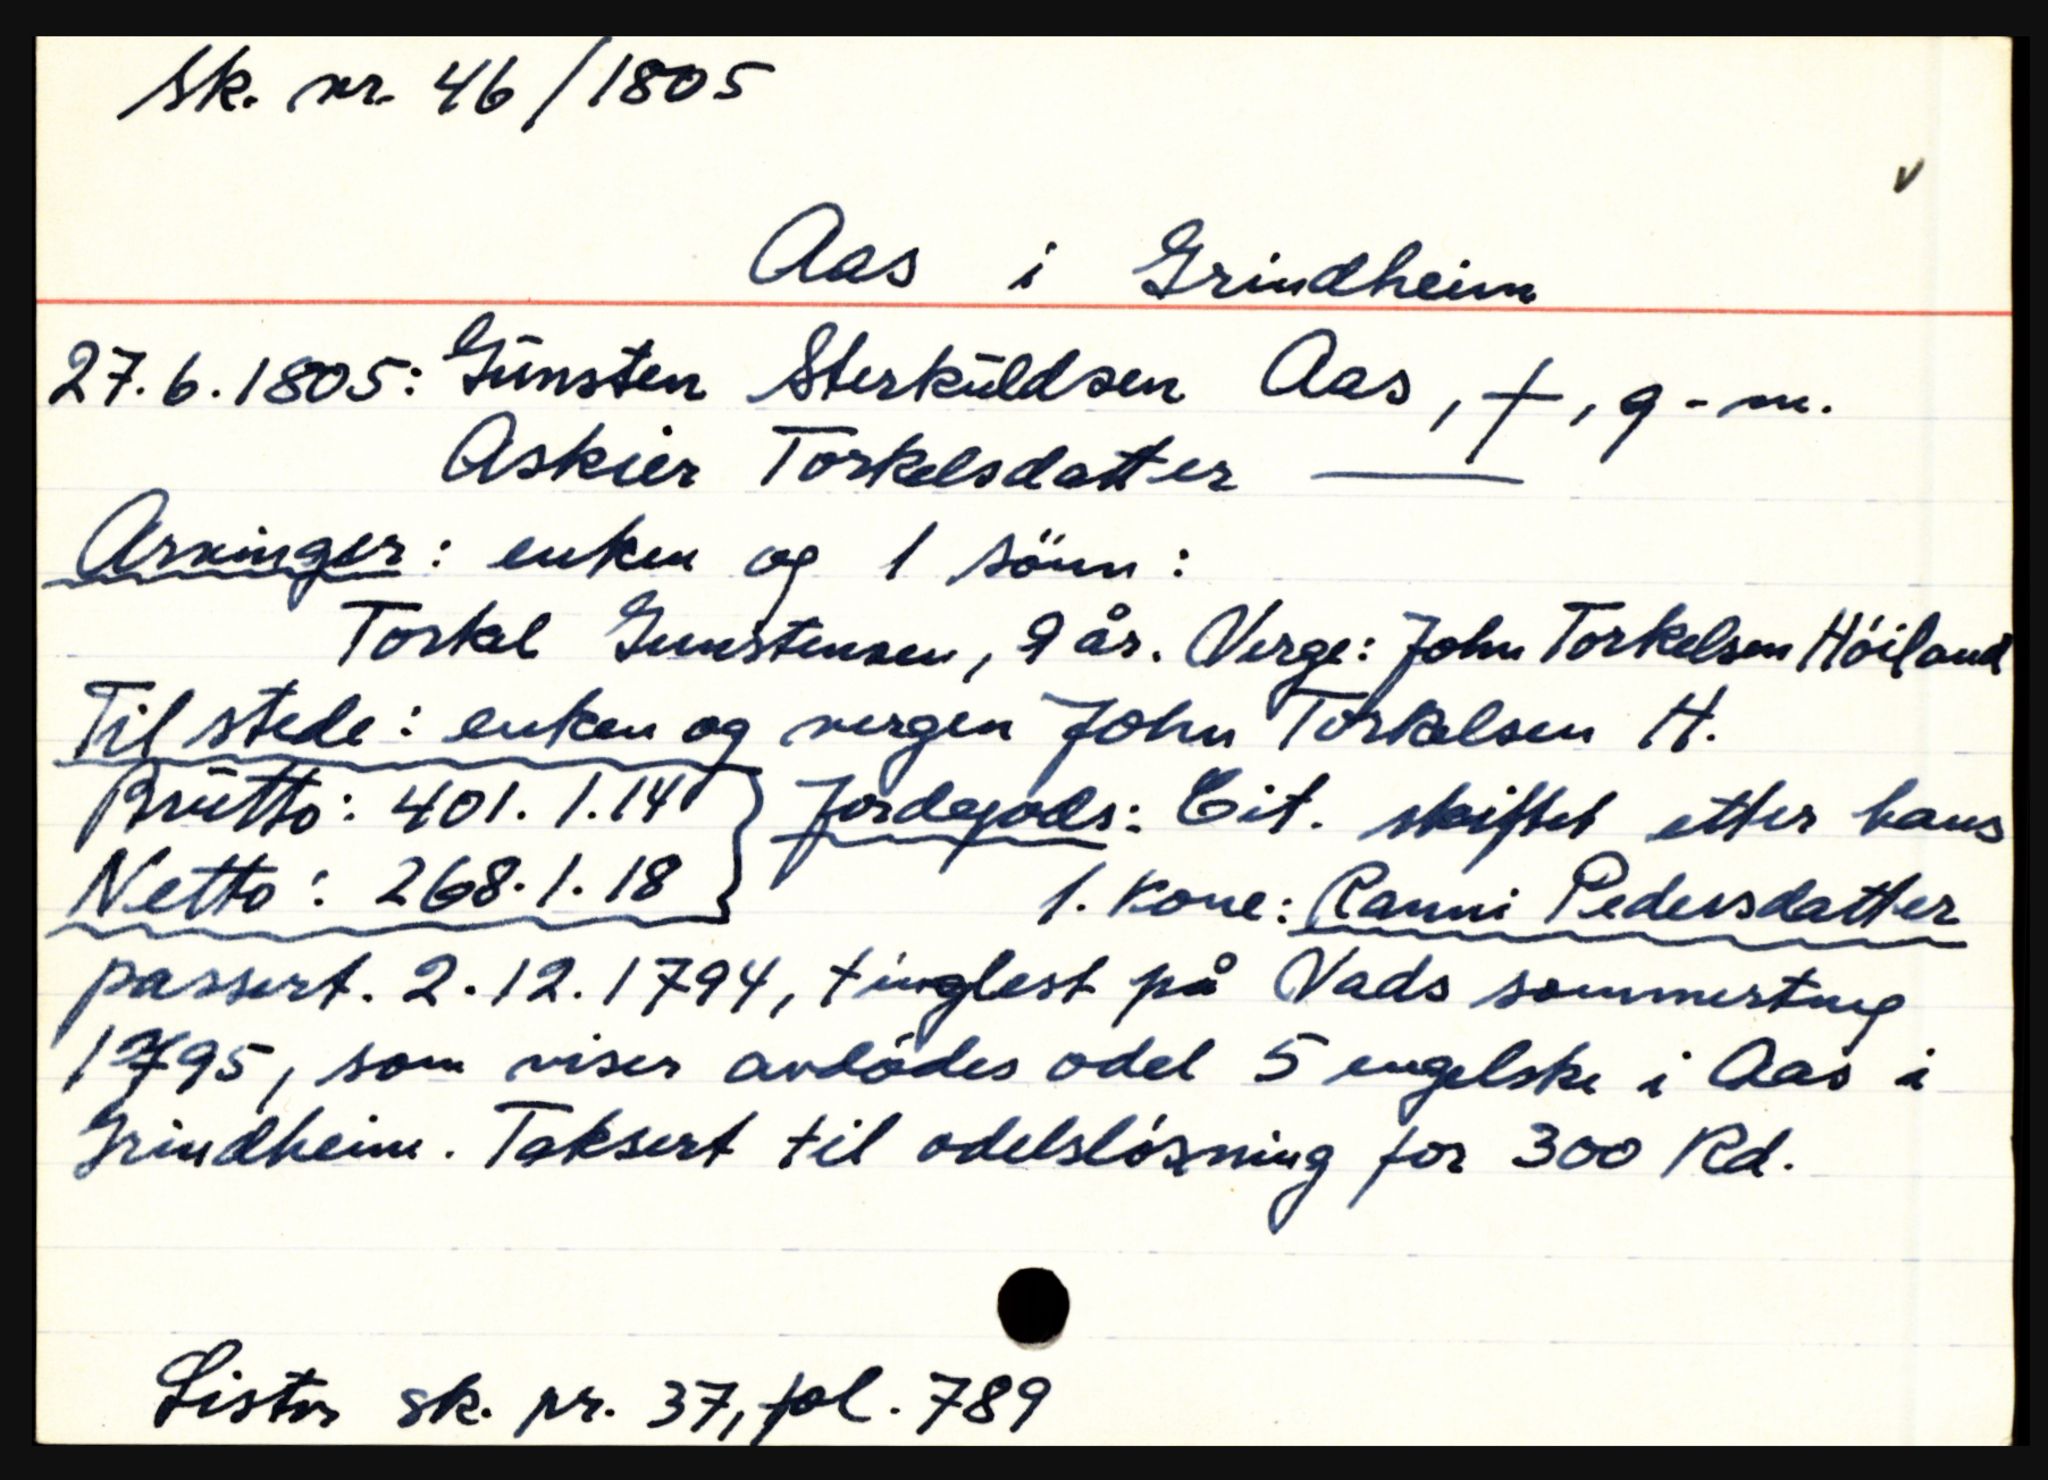 Sk. nr. 46/1805
v
Aas i Grindheim
27.6.1805: Gunsten Sterkuldsen Aas, †, g-m.
Askier Torkelsdatter ——
Arvinger: enken og 1 sönn:
Torkel Gunstensen, 9 år. Verge: John Torkelsen Höiland
Til stede: enken og vergen John Torkelsen H.
Brutto: 401.1.14 } Jordegods: Cit. skiftet etter hans
Netto: 268.1.18 1. kone: Ranni Pedersdatter
passert. 2.12.1794, tinglest på Vads sommerting
1795, som viser avdødes odel 5 engelske i Aas i
Grindheim. Taksert til odelsløsning for 300 Rd.
Lister sk. pr. 37, fol. 789